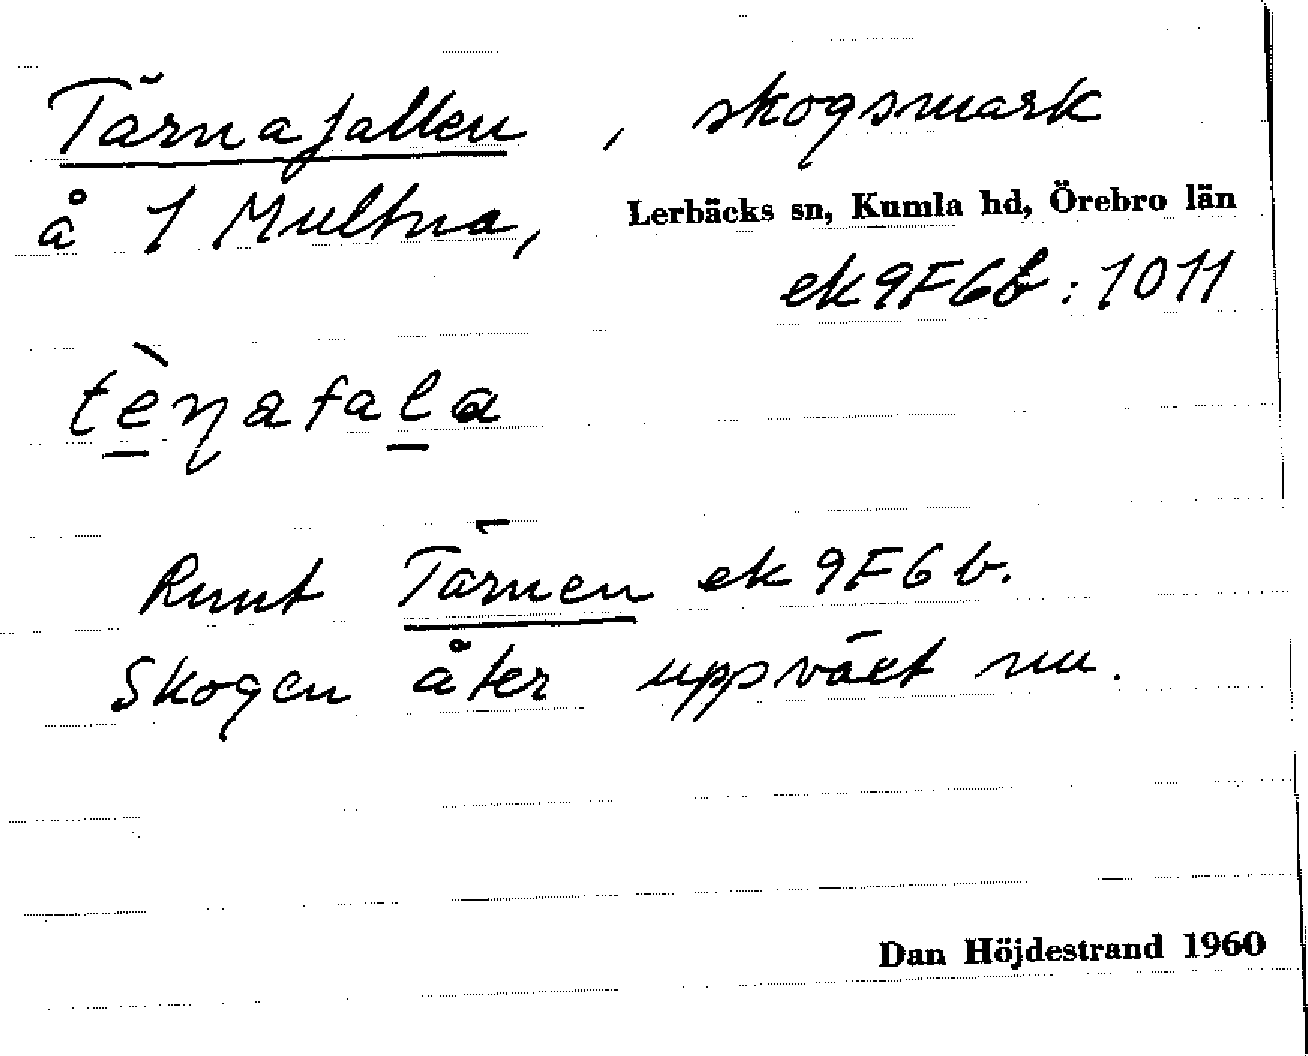 Tärnafallen, skogsmark
å 1 Multna, Lerbäcks sn, Kumla hd, Örebro län
ek9F6b:1011
tèṇafala
Runt Tärnen ek9F6b.
Skogen åter uppväxt nu.
Dan Höjdestrand 1960